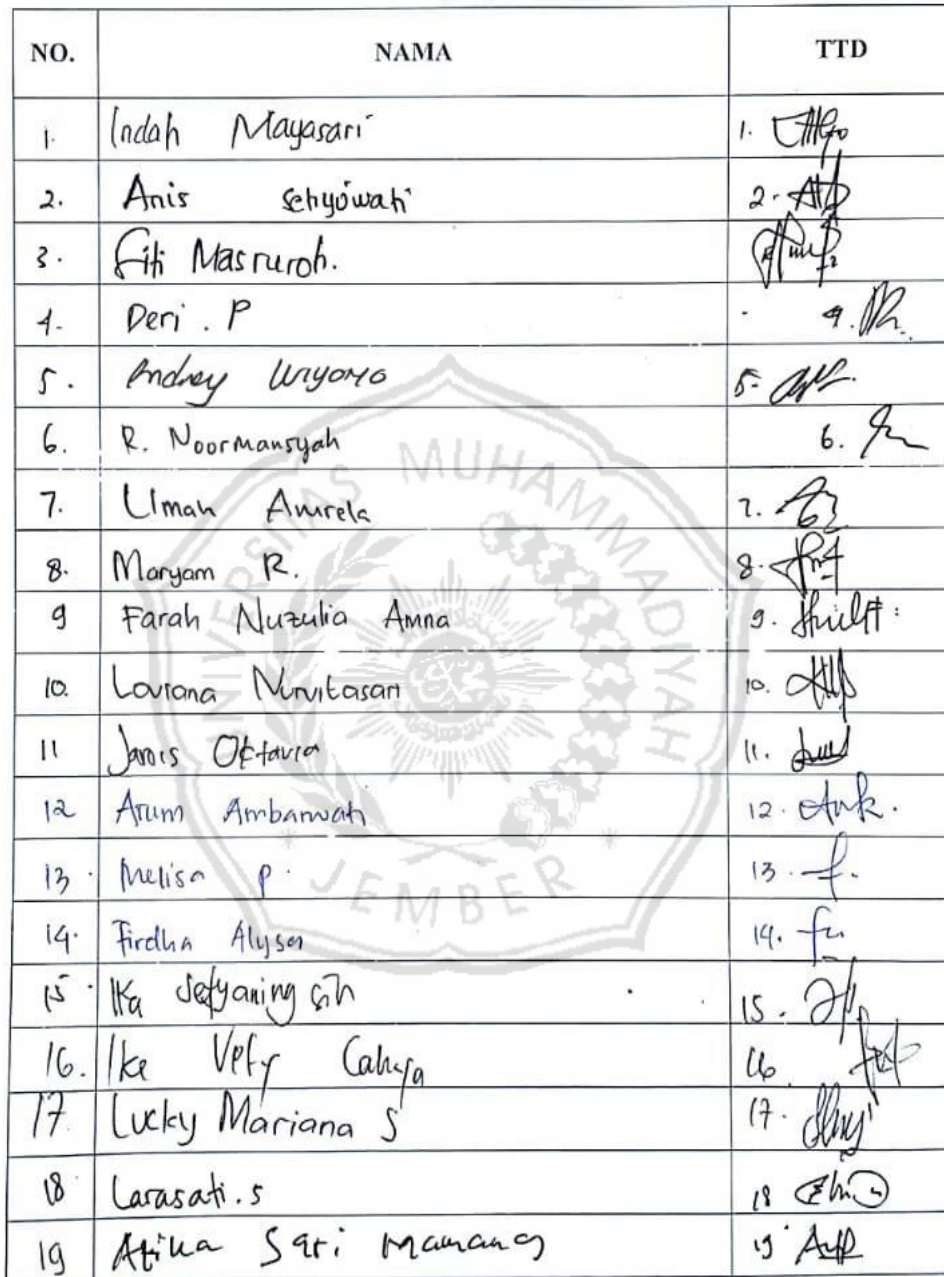 NO. NAMA TTD
1. Indah Mayasari 1.
2. Anis Setyowati 2.
3. Siti Masruroh.
4. Deri . P 4.
5. Andrey Wiyono 5.
6. R. Noormansyah 6.
7. Umah Amrela 7.
8. Maryam R. 8.
9 Farah Nuzulia Amna 9.
10. Loviana Nurvitasari 10.
11 Oktavia 11.
12 Arum Ambarwati 12.
13. Melisa P. 13.
14. Firdha Alysa 14.
15. Ika Setyaningsih 15.
16. Ike Vety Cahya 16
17 Lucky Mariana S 17.
18 Larasati.S 18
19 Atika Sari 19
UNIVERSITAS MUHAMMADIYAH
JEMBER